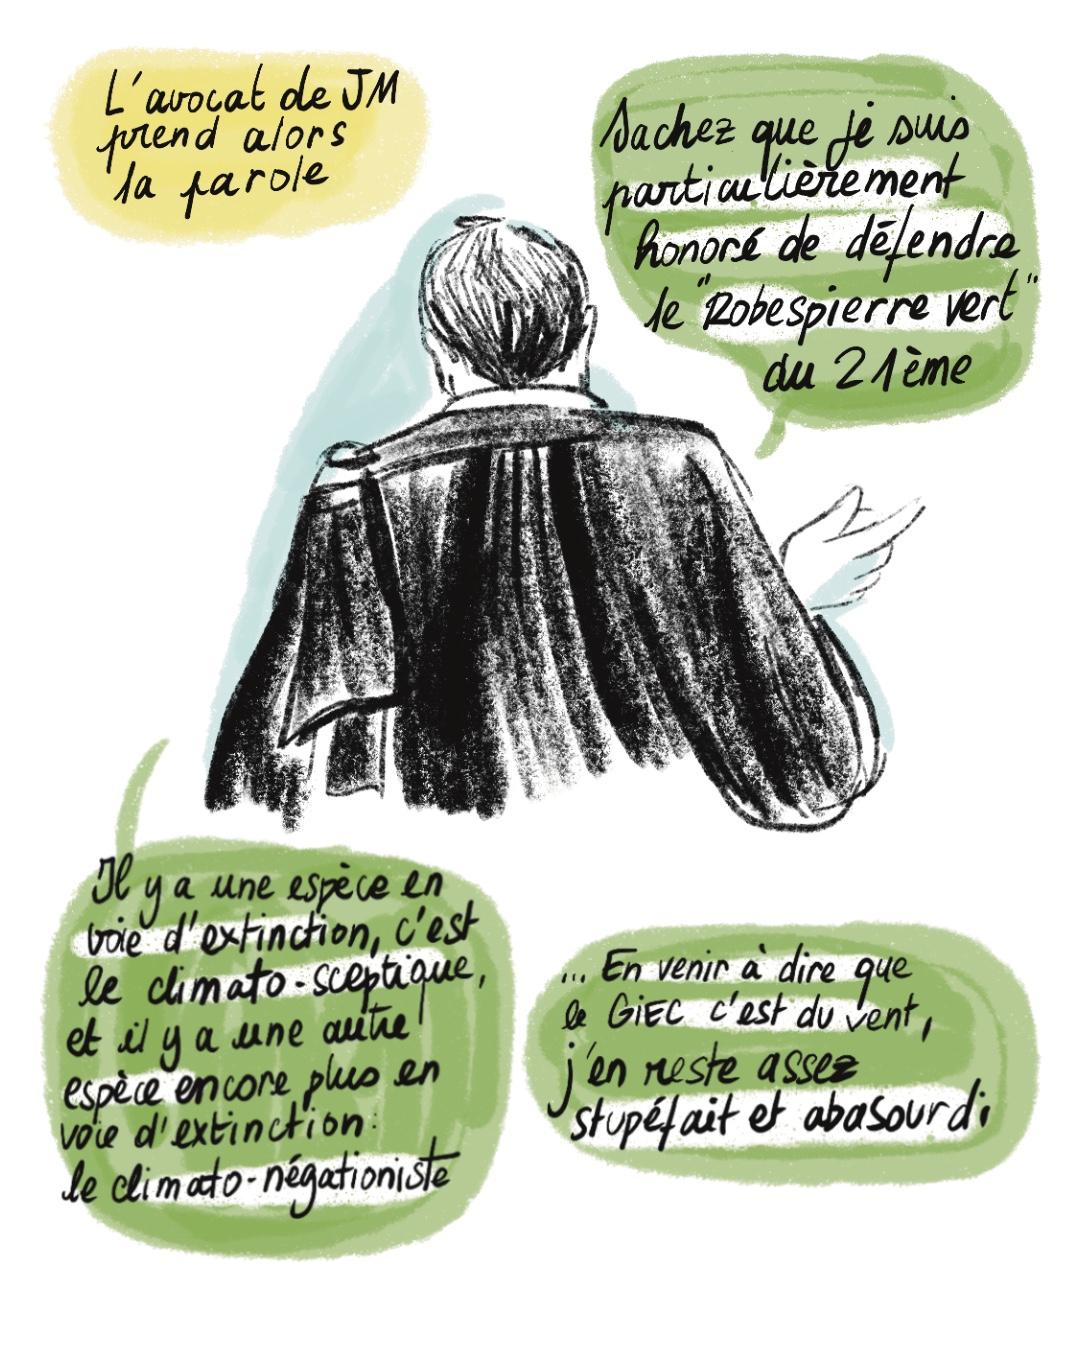 L'avocat de JM
prend alors
la parole
Sachez que je suis
particulièrement
honoré de défendre
le "Robespierre vert"
du 21ème
Il y a une espèce en
voie d'extinction, c'est
le climato-sceptique,
et il y a une autre
espèce encore plus en
voie d'extinction:
le climato-négationiste
... En venir à dire que
le GiEC c'est du vent,
j'en reste assez
stupéfait et abasourdi